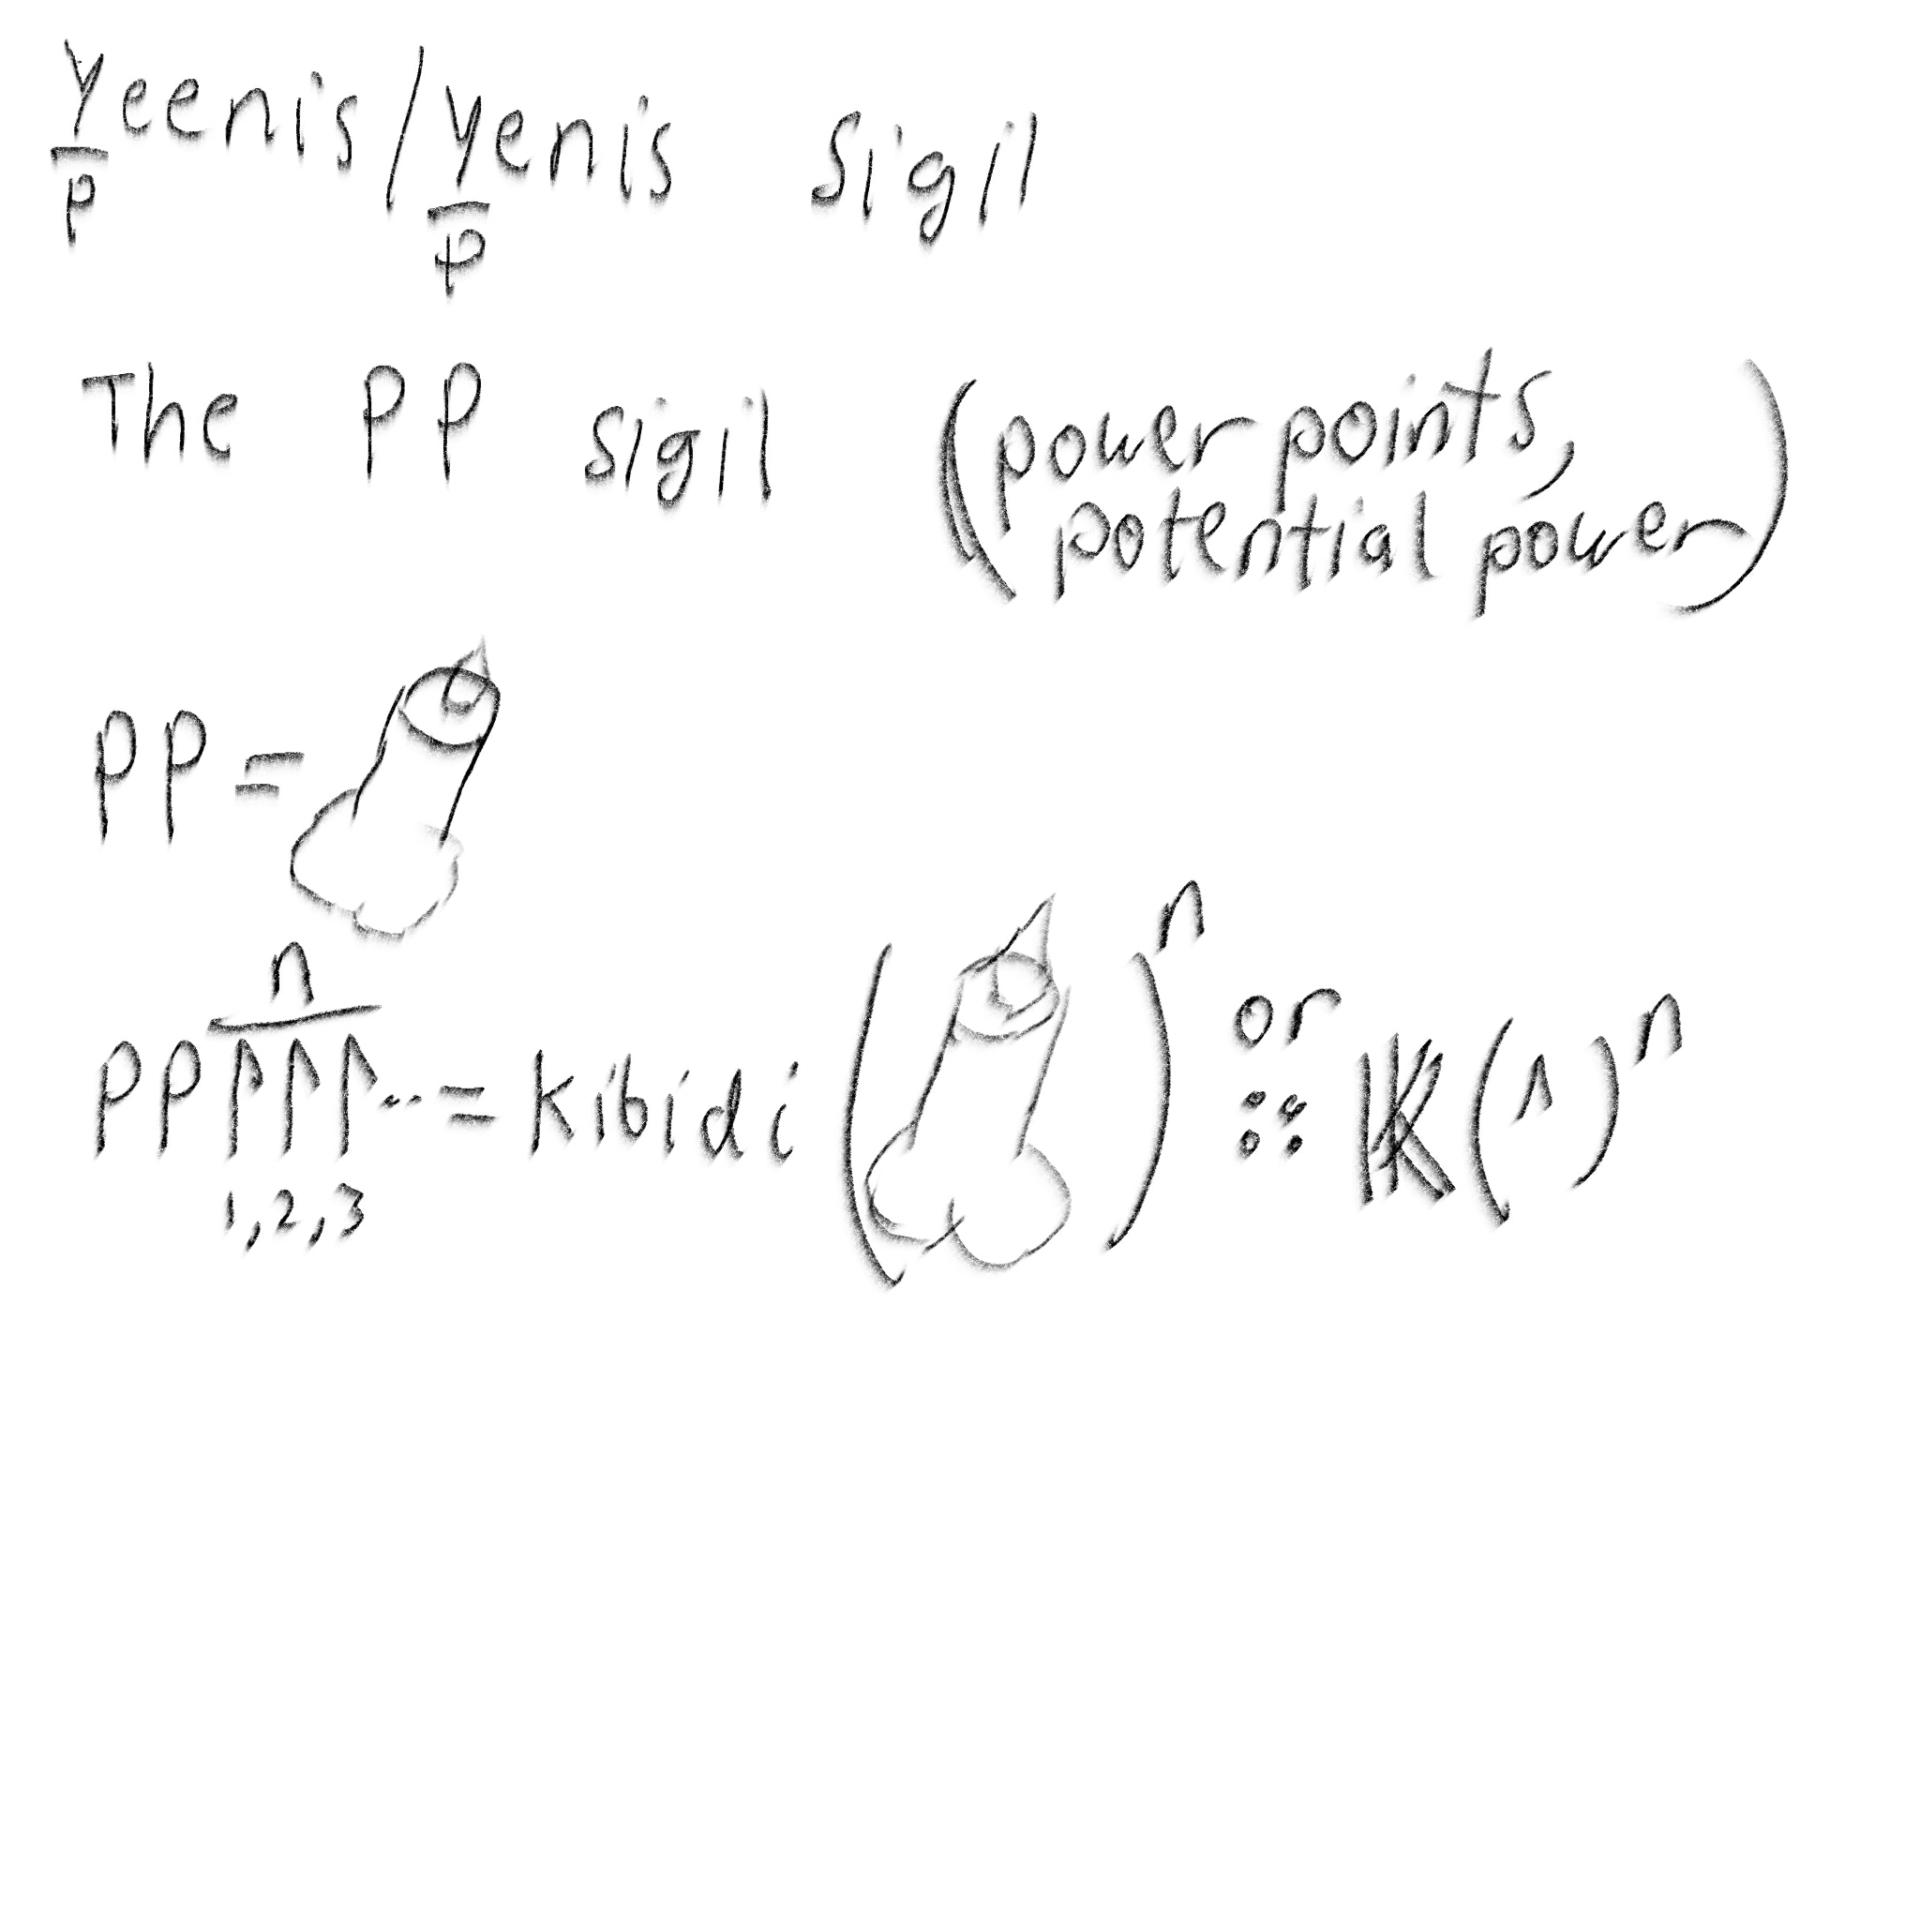 Yeenis/Yenis Sigil
P P
The PP sigil (power points,
potential power)
PP=
n
PPPPP..= kibidi ( )ⁿ or
:: 𝕂(^)ⁿ
1,2,3